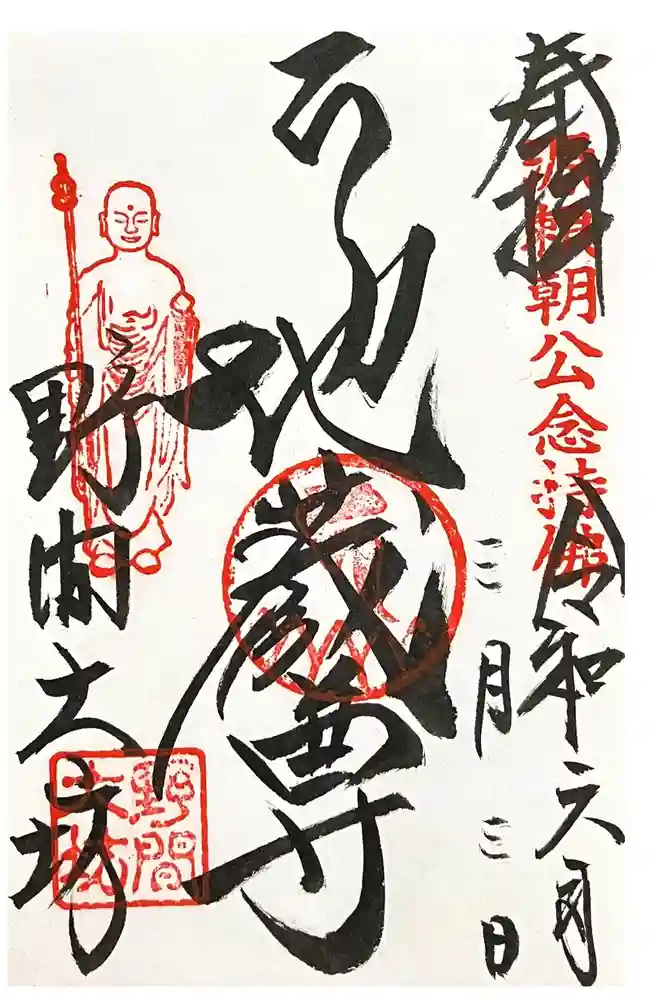 奉拝
源頼朝公念持佛
令和六年
三月三日
地蔵尊
野間大坊
野間大坊